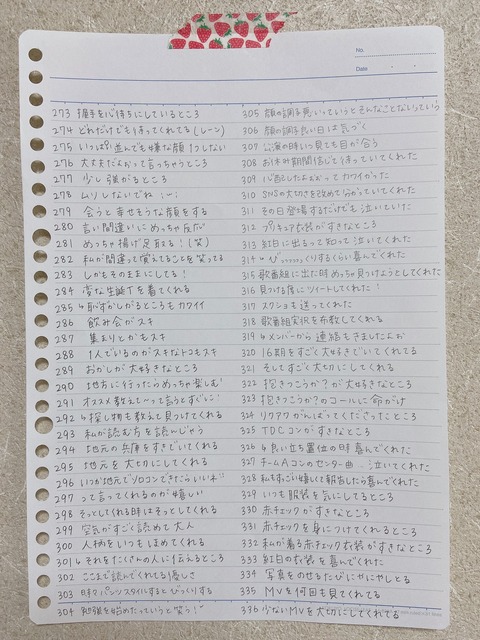 No.
Date
273 握手を心待ちにしているところ
274 どれだけでも待ってくれてる(レーン)
275 いっぱい並んでも嫌な顔1つしない
276 大丈夫だよおって言っちゃうところ
277 少し強がるところ
278 ムリしないでね
279 会うと幸せそうな顔をする
280 言い間違いにめっちゃ反応
281 めっちゃ揚げ足取る!(笑)
282 私が間違って覚えてることを笑ってる
283 しかもそのままにしてる!
284 変な生誕Tを着てくれる
285 恥ずかしがるところもカワイイ
286 飲み会がスキ
287 集まりとかもスキ
288 1人でいるのがスキなトコもスキ
289 おかしが大好きなところ
290 地方に行ったらめっちゃ楽しむ!
291 オススメ教えて〜って言うとすぐに!
292 探し物も教えて見つけてくれる
293 私が読む方を読んじゃう
294 地元の兵庫をすきでいてくれる
295 地元を大切にしてくれる
296 いつか地元でソロコンできたらいいネ
297 って言ってくれるのが嬉しい
298 そっとしてくれる時はそっとしてくれる
299 空気がすごく読めて大人
300 人柄をいつもほめてくれる
301 それをたくさんの人に伝えるところ
302 ここまで読んでくれてる優しさ
303 パンツスタイルすると びっくりする
304 勉強を始めたっていうと笑う!
305 顔の調子良いっていっっとそんなことないっていう
306 顔の調子良い日は気づく
307 公演の時いつ見ても目が合う
308 お休み期間信じて待っていてくれた
309 心配したよおおってカワイかった
310 SNSの大切さを改めて分かっていてくれた
311 その日登場するだけでも泣いていた
312 プリキュア衣装がすきなところ
313 紅白に出るって知って泣いてくれた
314 びっっっっっくりするくらい喜んでくれた
315 歌番組に出た時めっちゃ見つけようとしてくれた
316 見つける度にツイートしてくれた!
317 スクショも送ってくれた
318 歌番組実況を布教してくれる
319 メンバーから連絡もきましたよお
320 16期をすごく大好きでいてくれてる
321 そしてすごく大切にしてくれる
322 抱きつこうか?が大好きなところ
323 抱きつこうか?のコールに命がけ
324 リクアワがんばってくださったところ
325 TDCコンがすきなところ
326 良い立ち位置の時喜んでくれた
327 チームAコンのセンター曲…泣いてくれた
328 私もすっごい嬉しくて報告したら喜んでくれた
329 いつも服装を気にしてるところ
330 赤チェックがすきなところ
331 赤チェックを身につけてくれるところ
332 私が着る赤チェック衣装がすきなところ
333 紅白の衣装を喜んでくれた
334 写真をのせるたびにやにやしとる
335 MVを何回も見てくれてる
336 少ないMVを大切にしてくれてる